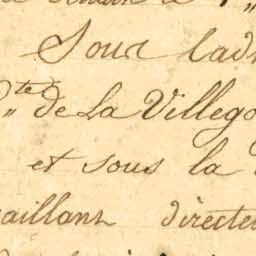 Sour l'ad
te de La Villego
et sous la
aillant directe